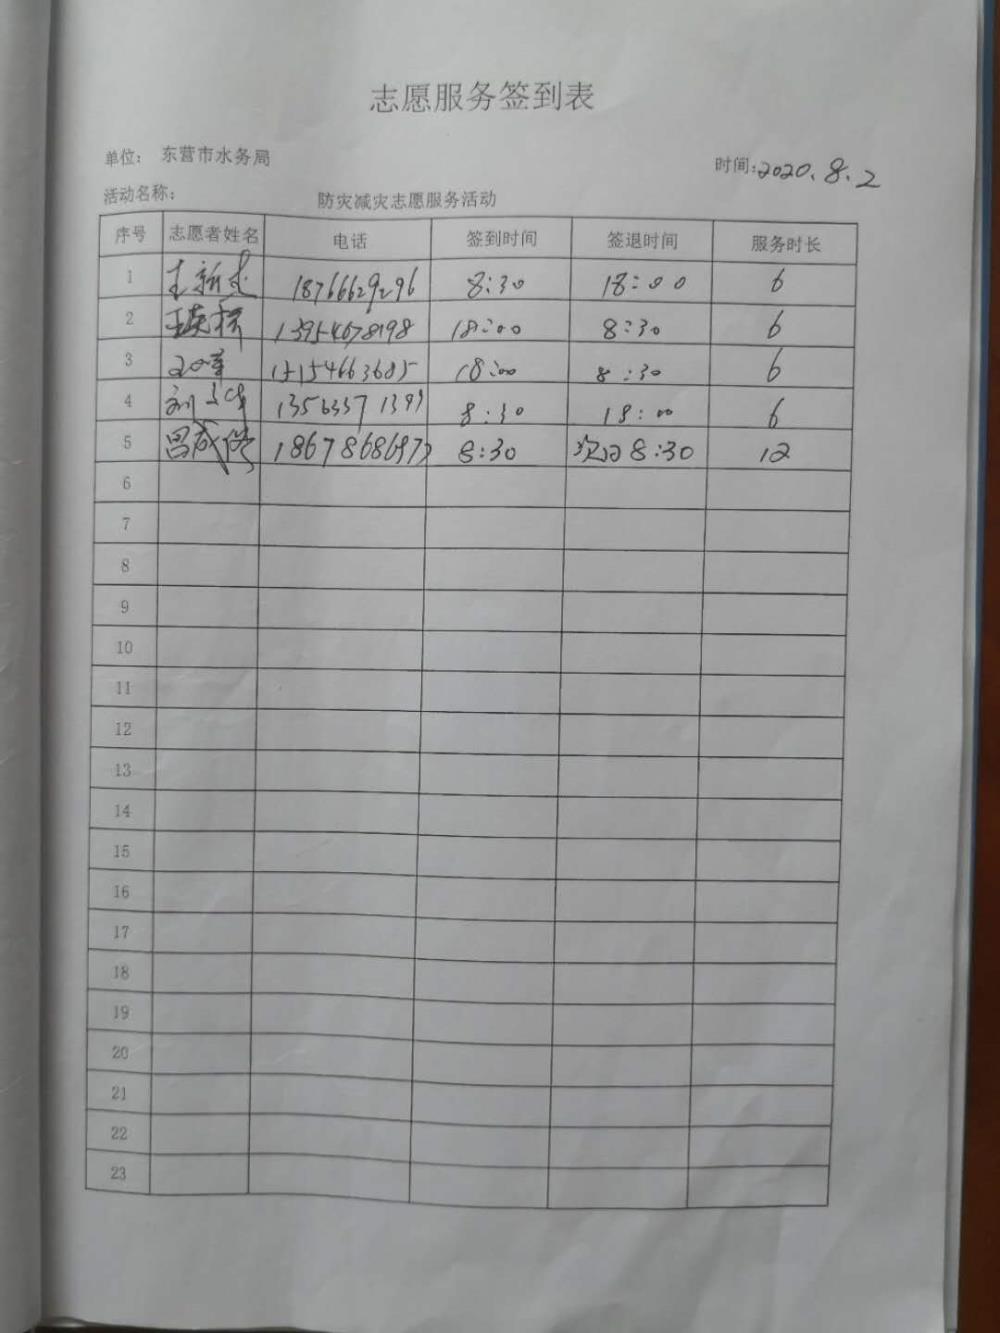 志愿服务签到表
单位： 东营市水务局 时间:2020.8.2
活动名称： 防灾减灾志愿服务活动
序号 志愿者姓名 电话 签到时间 签退时间 服务时长
1 18766629296 8:30 18:00 6
2 13954678198 18:00 8:30 6
3 15154663685 18:00 8:30 6
4 8:30 18:00 6
5 8:30 次日8:30 12
6
7
8
9
10
11
12
13
14
15
16
17
18
19
20
21
22
23